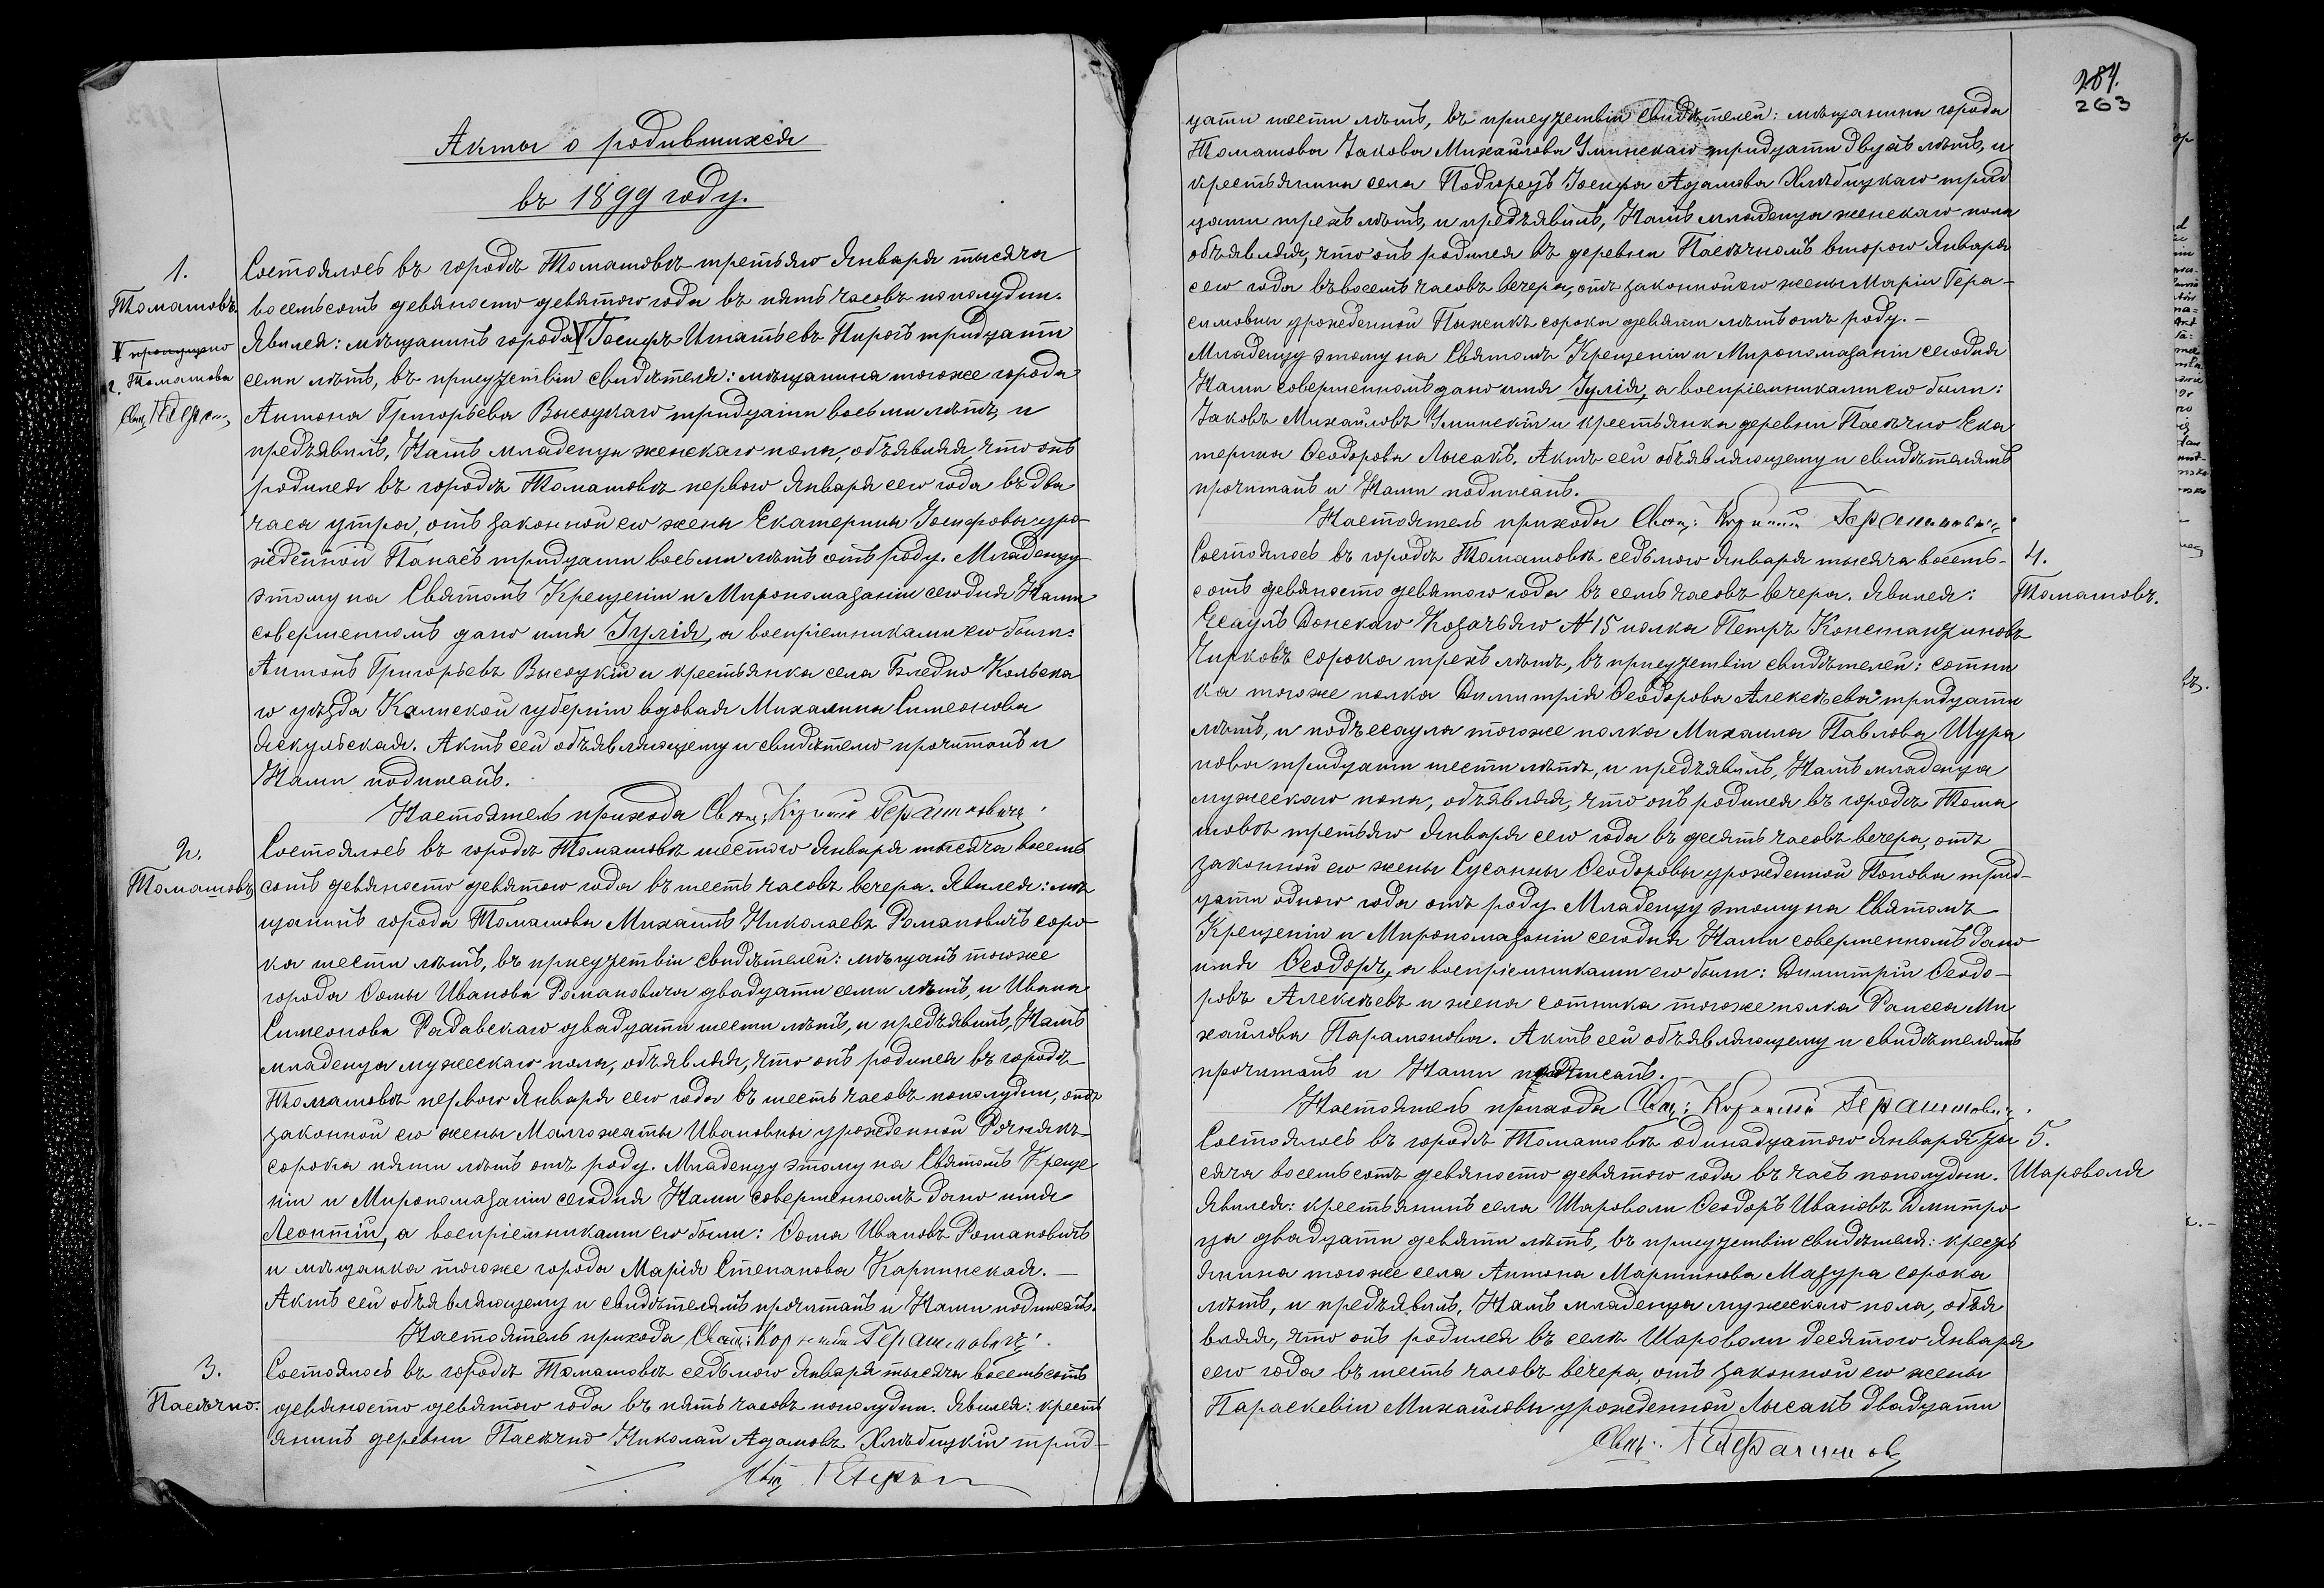 Акты о родившихся
въ 1899 году.
1.
Томашовъ.
V пропущено
г. Томашова
Свящ.
Состоялось въ городѣ Томашовѣ третьяго Января тысяча
восемьсотъ девяносто девятого года въ пять часовъ пополудни.
Явился: мѣщанинъ города V Іосифъ Игнатьевъ Пирогъ тридцати
семи лѣтъ, въ присутствіи свидѣтеля: мѣщанина тогоже города
Антона Григорьева Высоцкаго тридцати восьми лѣтъ, и
предъявилъ, Намъ младенца женскаго пола, объявляя, что онъ
родился въ городѣ Томашовѣ первого Января сего года въ два
часа утра, отъ законной его жены Екатерины Іосифовы уро-
жденной Панасъ тридцати восьми лѣтъ отъ роду. Младенцу
этому на Святомъ Крещеніи и Миропомазаніи сегодня Нами
совершенномъ дано имя Іулія, а воспріемниками его были:
Антонъ Григорьевъ Высоцкій и крестьянка села Бледно Кольска
го уѣзда Калиской губерніи вдовая Михалина Симеонова
Яскульская. Актъ сей объявляющему и свидѣтелю прочитанъ и
Нами подписанъ.
Настоятель прихода Свящ: Корнилій Герашимовичъ
2.
Томашовъ
Состоялось въ городѣ Томашовѣ шестого Января тысяча восемь
сотъ девяносто девятого года въ шесть часовъ вечера. Явился: мѣ
щанинъ города Томашова Михаилъ Николаевъ Романовичъ соро
ка шести лѣтъ, въ присутствіи свидѣтелей: мѣщанъ тогоже
города Ѳомы Иванова Романовича двадцати семи лѣтъ, и Ивана
Симеонова Радавскаго двадцати шести лѣтъ, и предъявилъ, Намъ
младенца мужескаго пола, объявляя, что онъ родился въ городѣ
Томашовѣ первого Января сего года въ шесть часовъ пополудни, отъ
законной его жены Малгожаты Ивановны урожденной
сорока пяти лѣтъ отъ роду. Младенцу этому на Святомъ Креще
ніи и Миропомазаніи сегодня Нами совершенномъ дано имя
Леонтій, а воспріемниками его были: Ѳома Ивановъ Романовичъ
и мѣщанка тогоже города Марія Степанова Карпинская. —
Актъ сей объявляющему и свидѣтелямъ прочитанъ и Нами подписанъ.
Настоятель прихода Свящ: Корнилій Герашимовичъ
3.
Пасѣчно.
Состоялось въ городѣ Томашовѣ седьмого Января тысяча восемьсотъ
девяносто девятого года въ пять часовъ пополудни. Явился: кресть
янинъ деревни Пасѣчно Николай Адамовъ Хлѣбицкій трид-
Свящ.
284.
263
цати шести лѣтъ, въ присутствіи свидѣтелей: мѣщанина города
Томашова Іакова Михайлова Улинскаго тридцати двухъ лѣтъ, и
крестьянина села Подгорецъ Іосифа Адамова Хлѣбицкаго трид
цати трехъ лѣтъ, и предъявилъ, Намъ младенца женскаго пола
объявляя, что онъ родился въ деревни Пасѣчномъ второго Января
сего года въ восемь часовъ вечера, отъ законной его жены Маріи Гера-
симовны урожденной Пыжикъ сорока девяти лѣтъ отъ роду. —
Младенцу этому на Святомъ Крещеніи и Миропомазаніи сегодня
Нами совершенномъ дано имя Іулія, а воспріемниками его были:
Іаковъ Михайловъ Улинскій и крестьянка деревни Пасѣчно Ека
терина Ѳеодорова Лысакъ. Актъ сей объявляющему и свидѣтелямъ
прочитанъ и Нами подписанъ.
Настоятель прихода Свящ: Корнилій Герашимовичъ
4.
Томашовъ.
Состоялось въ городѣ Томашовѣ седьмого Января тысяча восемь-
сотъ девяносто девятого года въ семь часовъ вечера. Явился:
Есаулъ Донскаго Козачьяго № 15 полка Петръ Константиновъ
Чирковъ сорока трехъ лѣтъ, въ присутствіи свидѣтелей: сотни
ка тогоже полка Димитрія Ѳеодорова Алексѣева тридцати
лѣтъ, и подъесаула тогоже полка Михаила Павлова Шура
пова тридцати шести лѣтъ, и предъявилъ, Намъ младенца
мужескаго пола, объявляя, что онъ родился въ городѣ Тома
шовѣ третьяго Января сего года въ десять часовъ вечера, отъ
законной его жены Сусанны Ѳеодоровы урожденной Попова трид-
цати одного года отъ роду. Младенцу этому на Святомъ
Крещеніи и Миропомазаніи сегодня Нами совершенномъ дано
имя Ѳеодоръ, а воспріемниками его были: Димитрій Ѳеодо-
ровъ Алексѣевъ и жена сотника тогоже полка Раиса Ми
хайлова Парамонова. Актъ сей объявляющему и свидѣтелямъ
прочитанъ и Нами подписанъ. —
Настоятель прихода Свящ: Корнилій Герашимовичъ.
5.
Шароволя
Состоялось въ городѣ Томашовѣ одинадцатого Января ты
сяча восемьсотъ девяносто девятого года въ часъ пополудни.
Явился: крестьянинъ села Шароволи Ѳеодоръ Ивановъ Дмитро
ца двадцати девяти лѣтъ, въ присутствіи свидѣтеля: кресть
янина тогоже села Антона Мартинова Мазура сорока
лѣтъ, и предъявилъ, Намъ младенца мужескаго пола, объя
вляя, что онъ родился въ селѣ Шароволи десятого Января
сего года въ шесть часовъ вечера, отъ законной его жены
Параскевіи Михайловы урожденной Лысакъ двадцати
Свящ: Герашимов